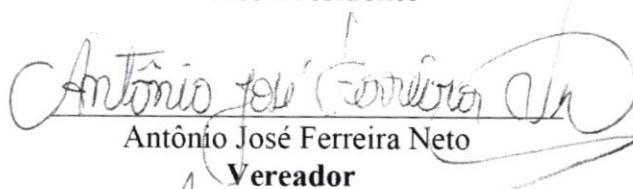 Antônio José Ferreira
Antônio José Ferreira Neto
Vereador